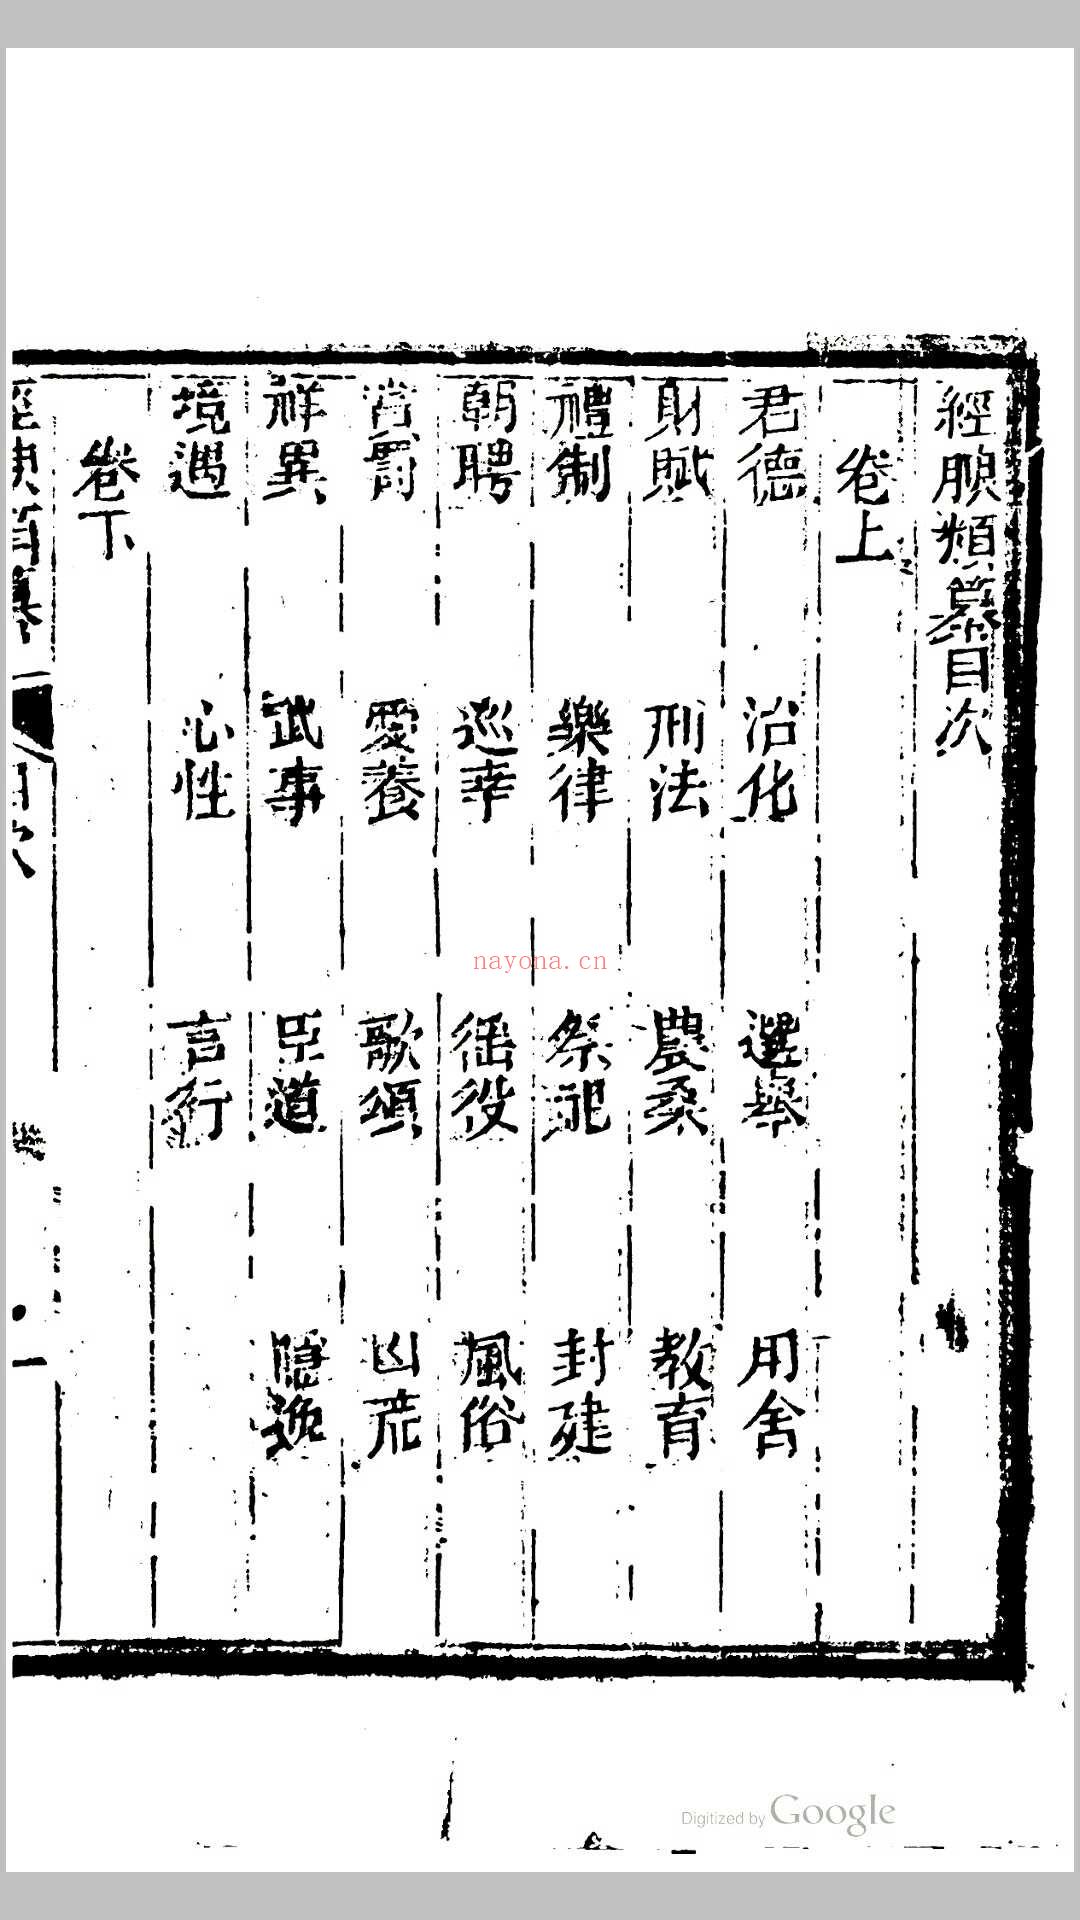 經腴類纂目次
卷上
君德 治化 選舉 用舍
財賦 刑法 農桑 教育
禮制 樂律 祭祀 封建
朝聘 巡幸 徭役 風俗
賞罰 愛養 歌頌 凶荒
祥異 武事 臣道 隱逸
境遇 心性 言行
卷下
經腴類纂 目次 一
nayona.cn
Digitized by Google